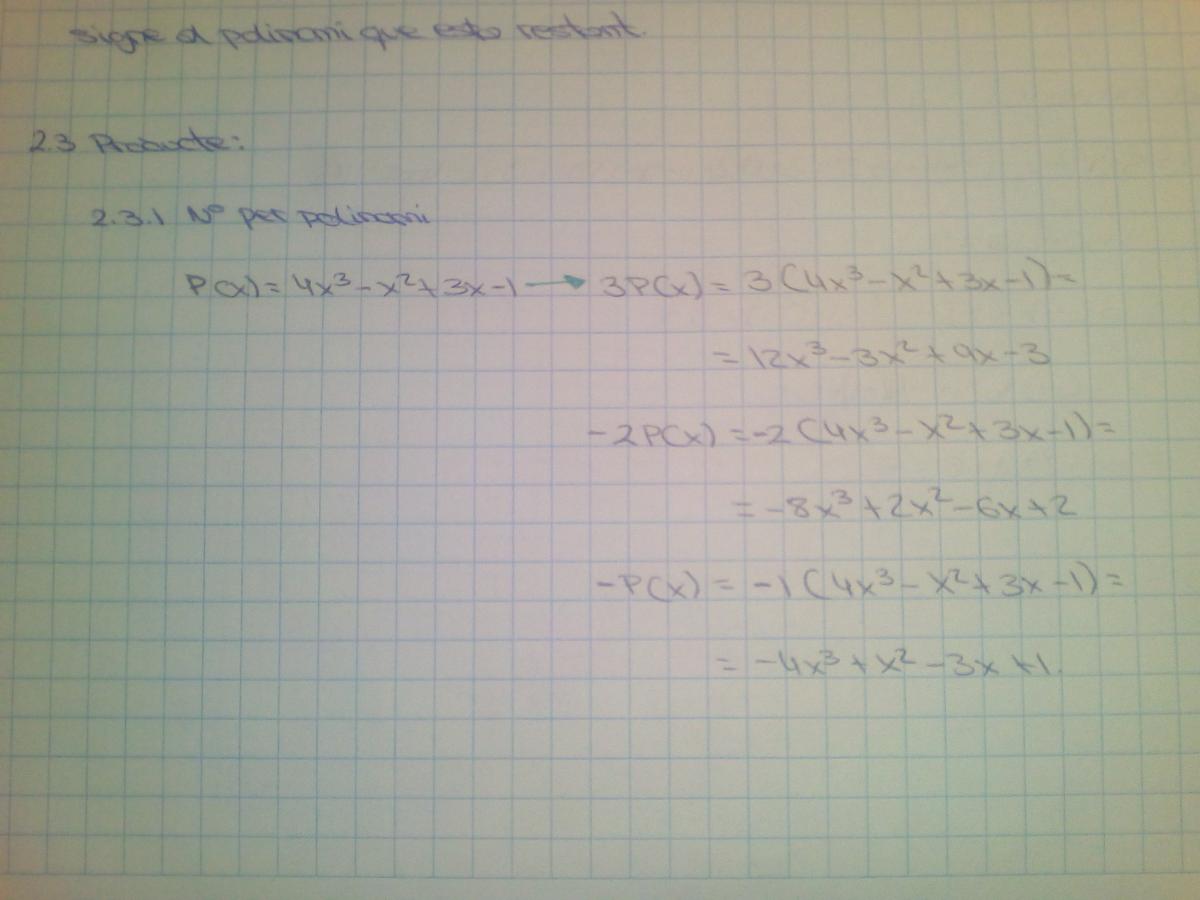 signe al polinomi que està restant.
2.3 Producte:
2.3.1 Nº per polinomi
P(x) = 4x³ - x² + 3x - 1 → 3P(x) = 3(4x³ - x² + 3x - 1) =
= 12x³ - 3x² + 9x - 3
-2P(x) = -2(4x³ - x² + 3x - 1) =
= -8x³ + 2x² - 6x + 2
-P(x) = -1(4x³ - x² + 3x - 1) =
= -4x³ + x² - 3x + 1.